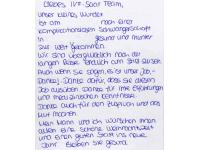 Liebes IVF-Saar Team,
unser kleines Wunder
ist am nach einer
komplikationslosen Schwangerschaft
in gesund und munter
zur Welt gekommen.
Wir sind überglücklich nach der
langen Reise endlich am Ziel zu sein.
Auch wenn Sie sagen, es ist unser Job,
- Danke! - Danke dafür, dass Sie diesen
Job ausüben. Danke für Ihre Erfahrungen
und medizinischen Kenntnisse.
Danke auch für den Zuspruch und das
Mut machen.
Mein Mann und ich wünschen Ihnen
allen eine schöne Weihnachtszeit
und einen guten Start ins neue
Jahr. Bleiben Sie gesund.